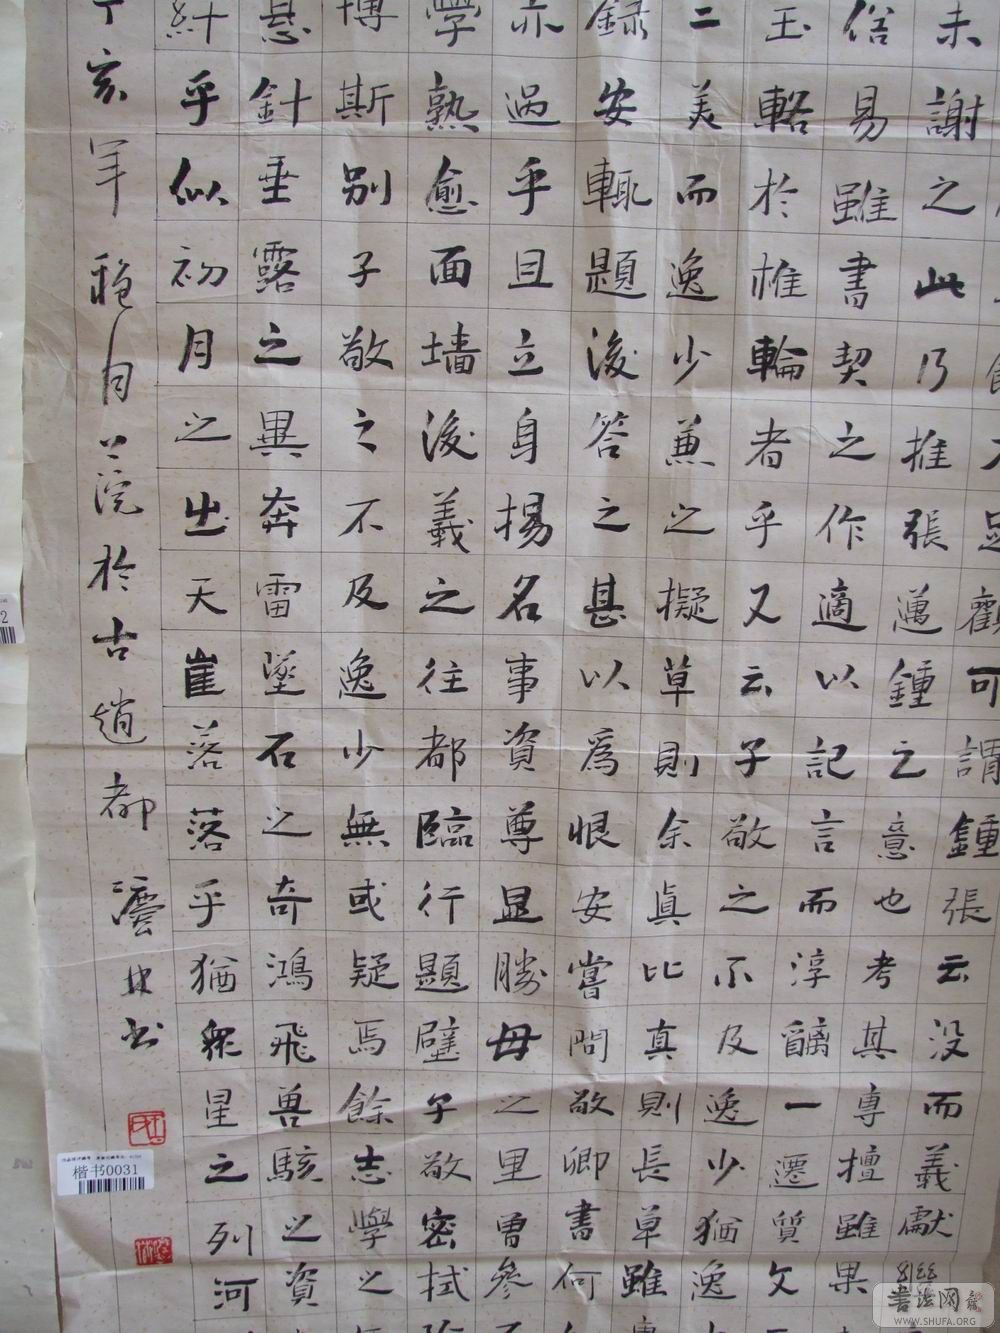 足觀可謂鍾張云没而羲獻繼
未謝之此乃推張邁鍾之意也考其專擅雖果
信易雖書契之作適以記言而淳醨一遷質文
玉輅於椎輪者乎又云子敬之不及逸少猶逸
二美而逸少兼之擬草則余真比真則長草雖
録安輒題後答之甚以爲恨安嘗問敬卿書何
亦過乎且立身揚名事資尊顯勝母之里曾參
學熟愈面墙後羲之往都臨行題壁子敬密拭
博斯别子敬之不及逸少無或疑焉餘志學之
懸針垂露之異奔雷墜石之奇鴻飛獸駭之資
紆乎似初月之出天崖落落乎猶衆星之列河
丁亥年穐月上浣於古趙都澐林书
楷书0031
书法网
WWW.SHUFA.ORG